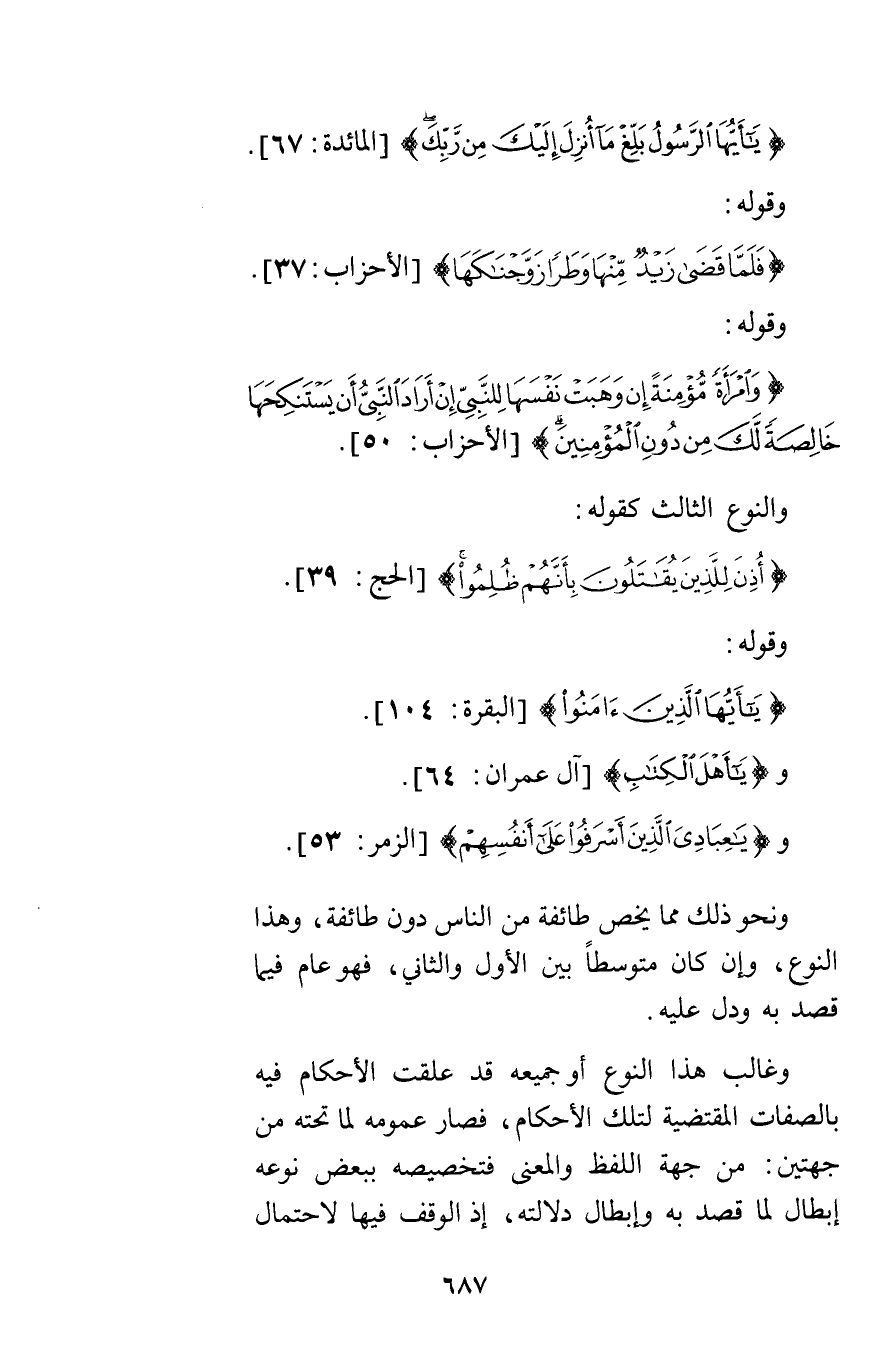 ﴿ يَٰٓأَيُّهَا ٱلرَّسُولُ بَلِّغْ مَآ أُنزِلَ إِلَيْكَ مِن رَّبِّكَ ۖ ﴾ [المائدة: ٦٧].
وقوله:
﴿ فَلَمَّا قَضَىٰ زَيْدٌ مِّنْهَا وَطَرًا زَوَّجْنَٰكَهَا ﴾ [الأحزاب: ٣٧].
وقوله:
﴿ وَٱمْرَأَةً مُّؤْمِنَةً إِن وَهَبَتْ نَفْسَهَا لِلنَّبِيِّ إِنْ أَرَادَ ٱلنَّبِيُّ أَن يَسْتَنكِحَهَا
خَالِصَةً لَّكَ مِن دُونِ ٱلْمُؤْمِنِينَ ۗ ﴾ [الأحزاب: ٥٠].
والنوع الثالث كقوله:
﴿ أُذِنَ لِلَّذِينَ يُقَٰتَلُونَ بِأَنَّهُمْ ظُلِمُوا۟ ۚ ﴾ [الحج: ٣٩].
وقوله:
﴿ يَٰٓأَيُّهَا ٱلَّذِينَ ءَامَنُوا۟ ﴾ [البقرة: ١٠٤].
و ﴿ يَٰٓأَهْلَ ٱلْكِتَٰبِ ﴾ [آل عمران: ٦٤].
و ﴿ يَٰعِبَادِىَ ٱلَّذِينَ أَسْرَفُوا۟ عَلَىٰٓ أَنفُسِهِمْ ﴾ [الزمر: ٥٣].
ونحو ذلك مما يخص طائفة من الناس دون طائفة، وهذا
النوع، وإن كان متوسطاً بين الأول والثاني، فهو عام فيما
قصد به ودل عليه.
وغالب هذا النوع أو جميعه قد علقت الأحكام فيه
بالصفات المقتضية لتلك الأحكام، فصار عمومه لما تحته من
جهتين: من جهة اللفظ والمعنى فتخصيصه ببعض نوعه
إبطال لما قصد به وإبطال دلالته، إذ الوقف فيها لاحتمال
٦٨٧